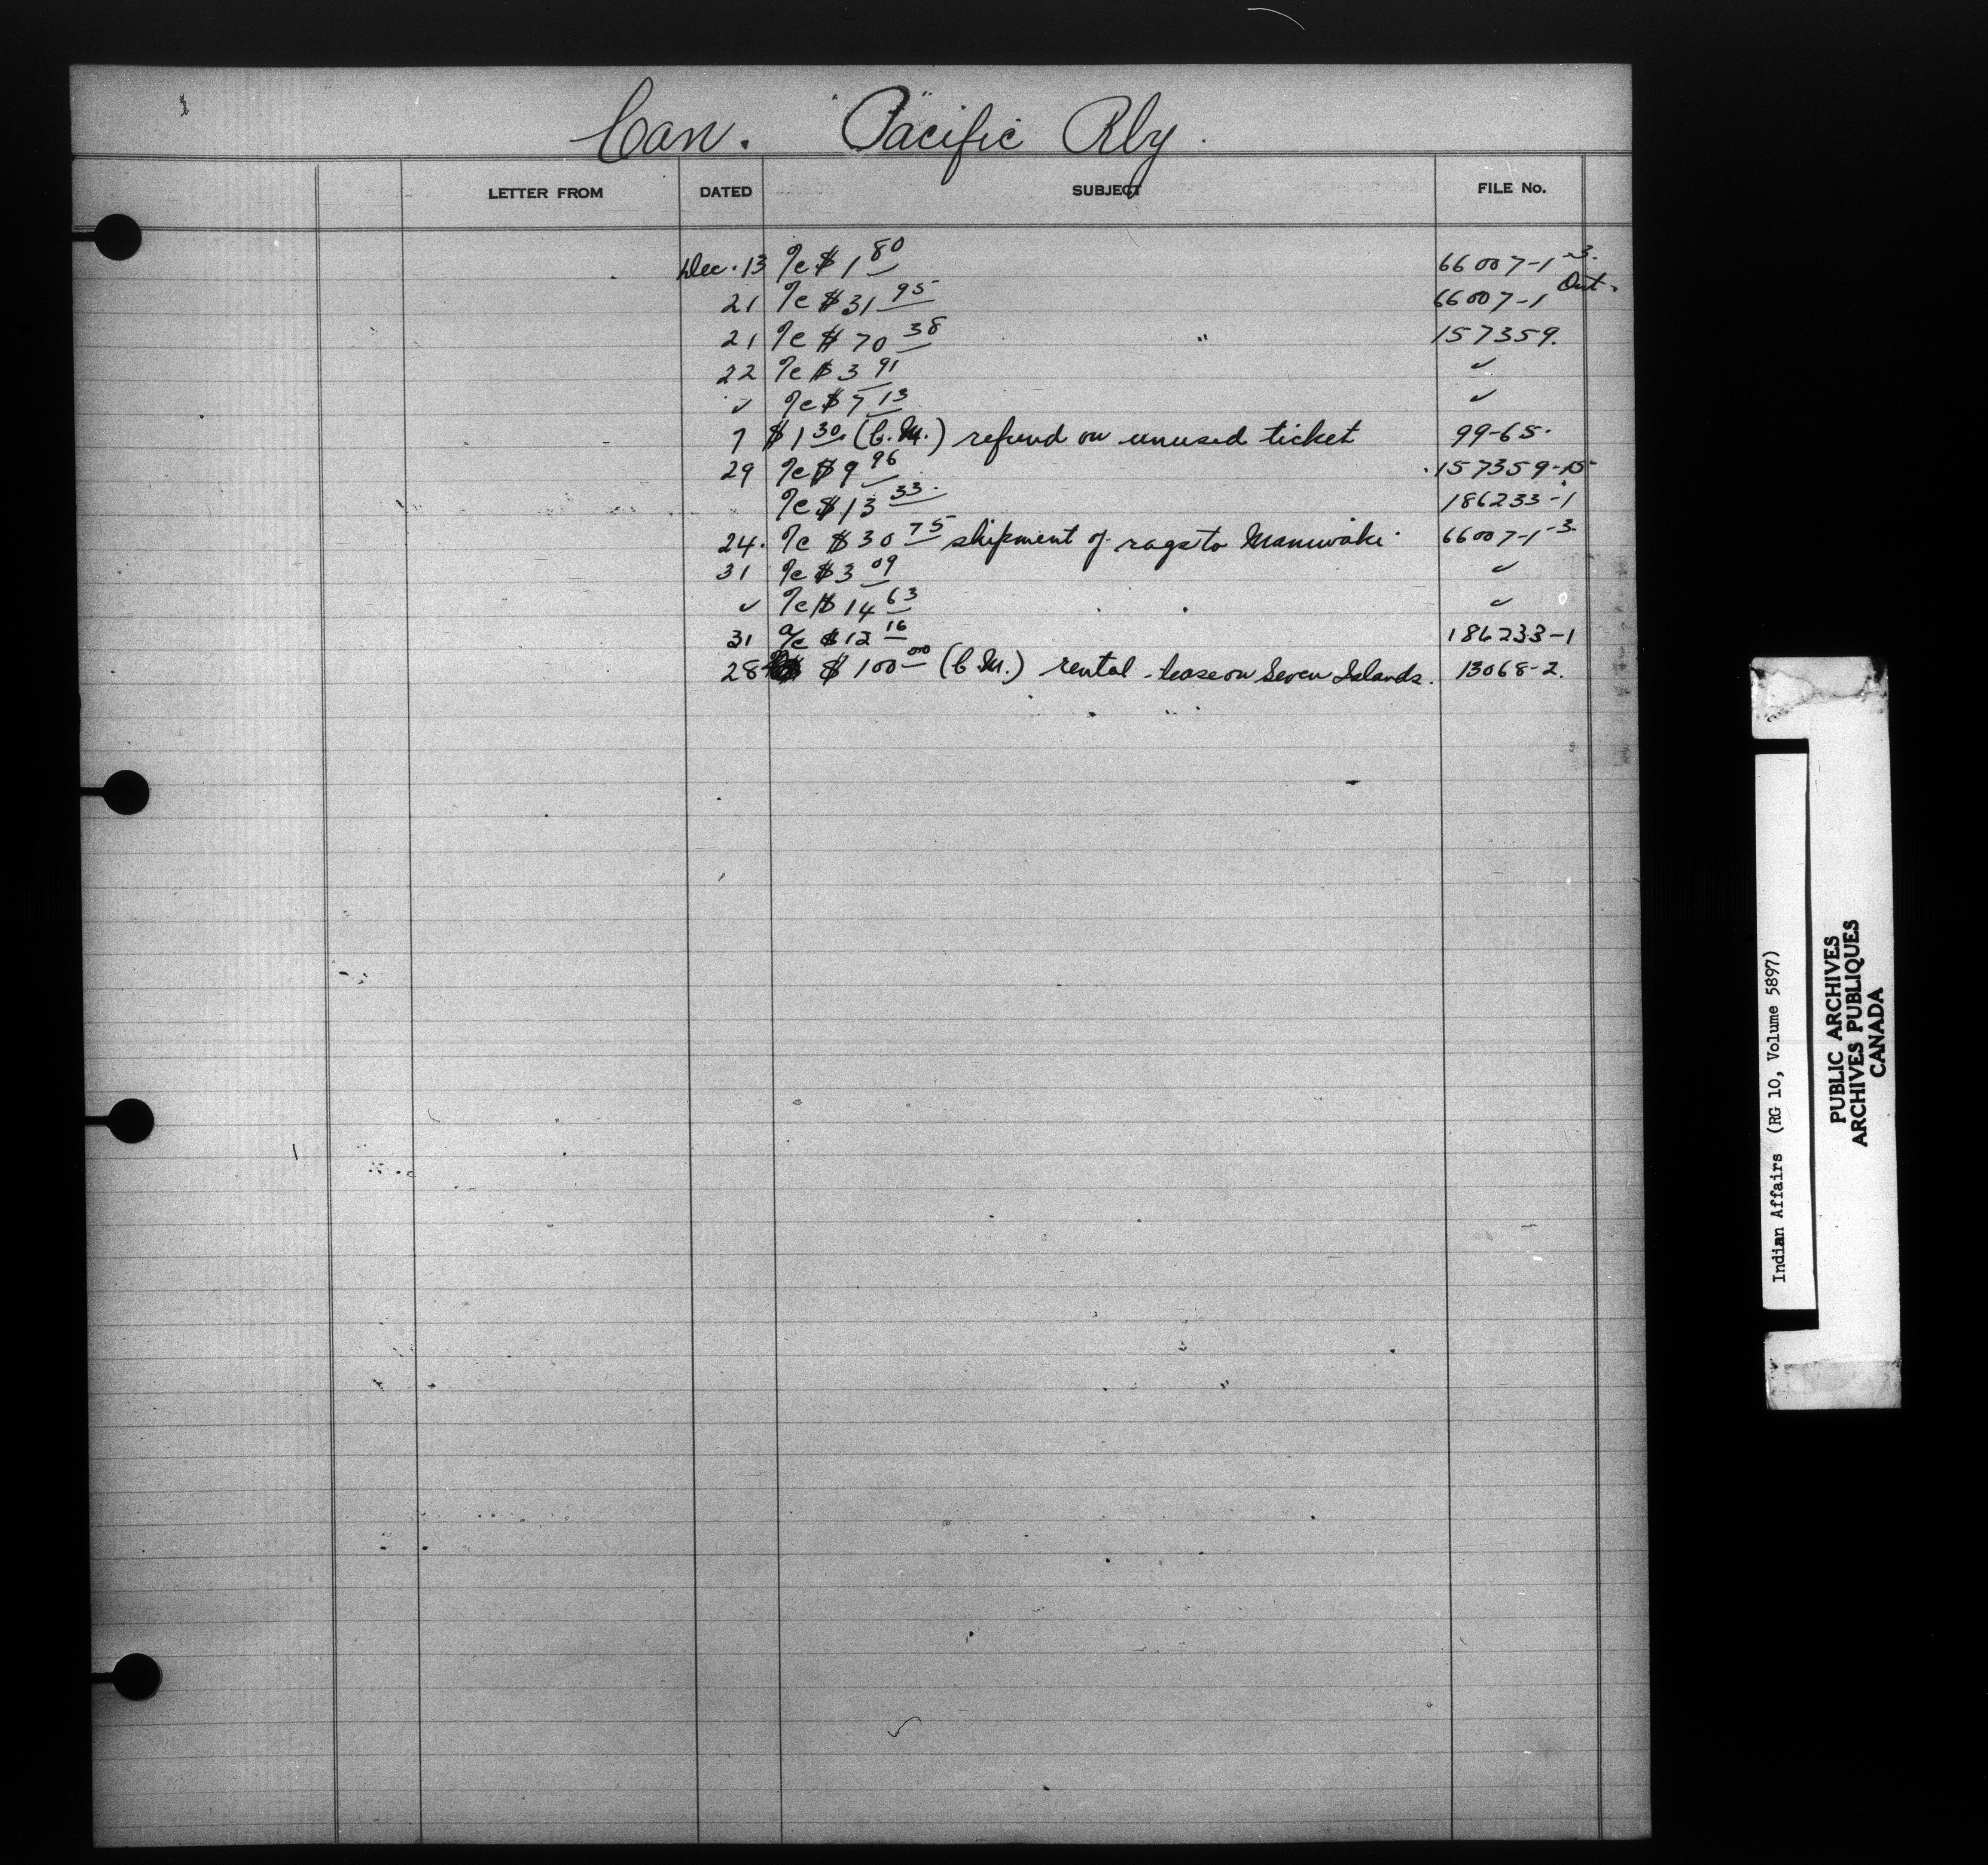 Can. Pacific Rly.
LETTER FROM DATED SUBJECT FILE No.
Dec. 13 a/c $1 80 66007-1-3.
21 a/c $31 95 66007-1 Ont.
21 a/c $70 38 " 157359.
22 a/c $3 91 ✓
✓ a/c $7 13 ✓
7 $1 30 (C.M.) refund on unused ticket 99-65.
29 a/c $9 96 157359-15
a/c $13 33. 186233-1
24. a/c $30 75 shipment of rags to Maniwaki. 66007-1-3
31 a/c $3 09 ✓
✓ a/c $14 63 ✓
31 a/c $12 16 186233-1
28 $100 00 (C.M.) rental - lease on Seven Islands. 13068-2.
Indian Affairs (RG 10, Volume 5897)
PUBLIC ARCHIVES
ARCHIVES PUBLIQUES
CANADA